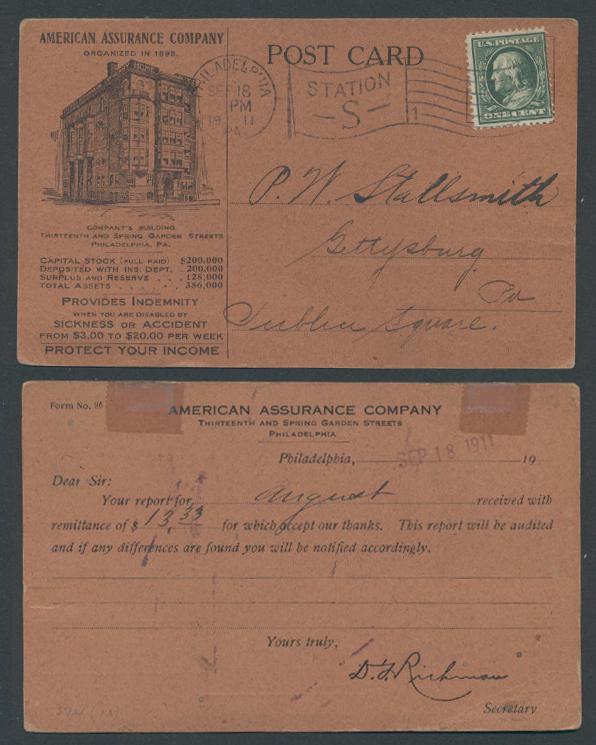 AMERICAN ASSURANCE COMPANY
ORGANIZED IN 1895.
HOME
COMPANY'S BUILDING,
THIRTEENTH AND SPRING GARDEN STREETS
PHILADELPHIA, PA.
CAPITAL STOCK (FULL PAID) $200,000
DEPOSITED WITH INS. DEPT. . 200,000
SURPLUS AND RESERVE . . . 128,000
TOTAL ASSETS . . . . . 356,000
PROVIDES INDEMNITY
WHEN YOU ARE DISABLED BY
SICKNESS OR ACCIDENT
FROM $3.00 TO $20.00 PER WEEK
PROTECT YOUR INCOME
POST CARD
PHILADELPHIA
SEP 18
PM
1911
PA.
STATION
-S-
1
U.S. POSTAGE
ONE CENT
P. W. Stallsmith
Gettysburg
Pa
Dublin Square.
Form No. 96
AMERICAN ASSURANCE COMPANY
THIRTEENTH AND SPRING GARDEN STREETS
PHILADELPHIA
Philadelphia, SEP 18 1911 19
Dear Sir:
Your report for August received with
remittance of $ 13.33 for which accept our thanks. This report will be audited
and if any differences are found you will be notified accordingly.
Yours truly,
D. F. Richman
Secretary